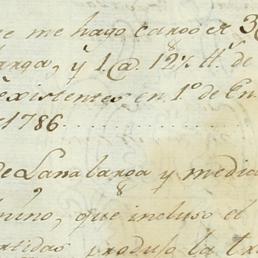 e me hago cargo er 3
larga, y 1@. 12½ tt.s de
existentes en 1.o de En
1786
de Lana larga y media
nino, que incluso el
artidas produjo la tra